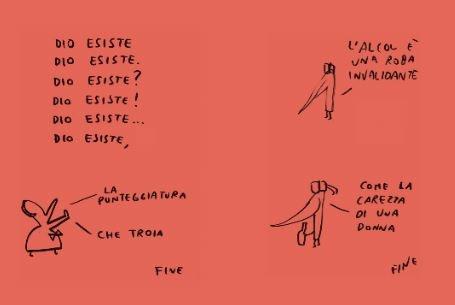 DIO ESISTE
DIO ESISTE.
DIO ESISTE?
DIO ESISTE!
DIO ESISTE...
DIO ESISTE,
LA
PUNTEGGIATURA
CHE TROIA
FINE
L'ALCOL È
UNA ROBA
INVALIDANTE
COME LA
CAREZZA
DI UNA
DONNA
FINE